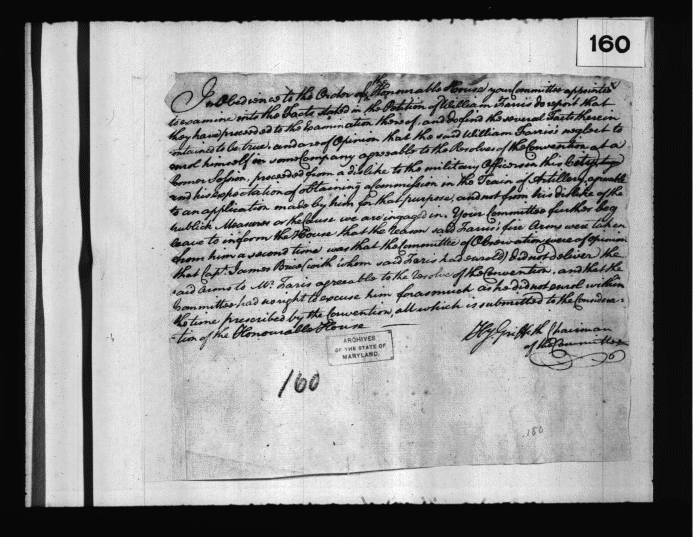 160
In Obedience to the Order of the Honourable House your Committee appointed
to examine into the Facts stated in the Petition of William Farris do report that
they have proceeded to the examination thereof, and do find the several Facts therein
contained to be true, and are of Opinion that the said William Farris's neglect to
enrol himself in some Company agreeable to the Resolves of the Convention at a
former Session, proceeded from a dislike to the military Officers in this City
and his expectation of obtaining a Commission in the Train of Artillery, agreeable
to an application made by him for that purpose, and not from his dislike of the
publick Measures or the Cause we are ingaged in. Your Committee further beg
leave to inform the House that the reason said Farris's fire Arms were taken
from him a second time was that the Committee of Observation were of opinion
that Capt. James Brice (with whom said Faris had enrold) did not deliver the
said Arms to Mr. Faris agreeable to the resolve of the Convention, and that the
Committee had no right to excuse him forasmuch as he did not enrol within
the time prescribed by the Convention, all which is submitted to the Considera-
tion of the Honourable House
Hy. Griffith Chairman
of the Committee
ARCHIVES
OF THE STATE OF
MARYLAND.
160
.180